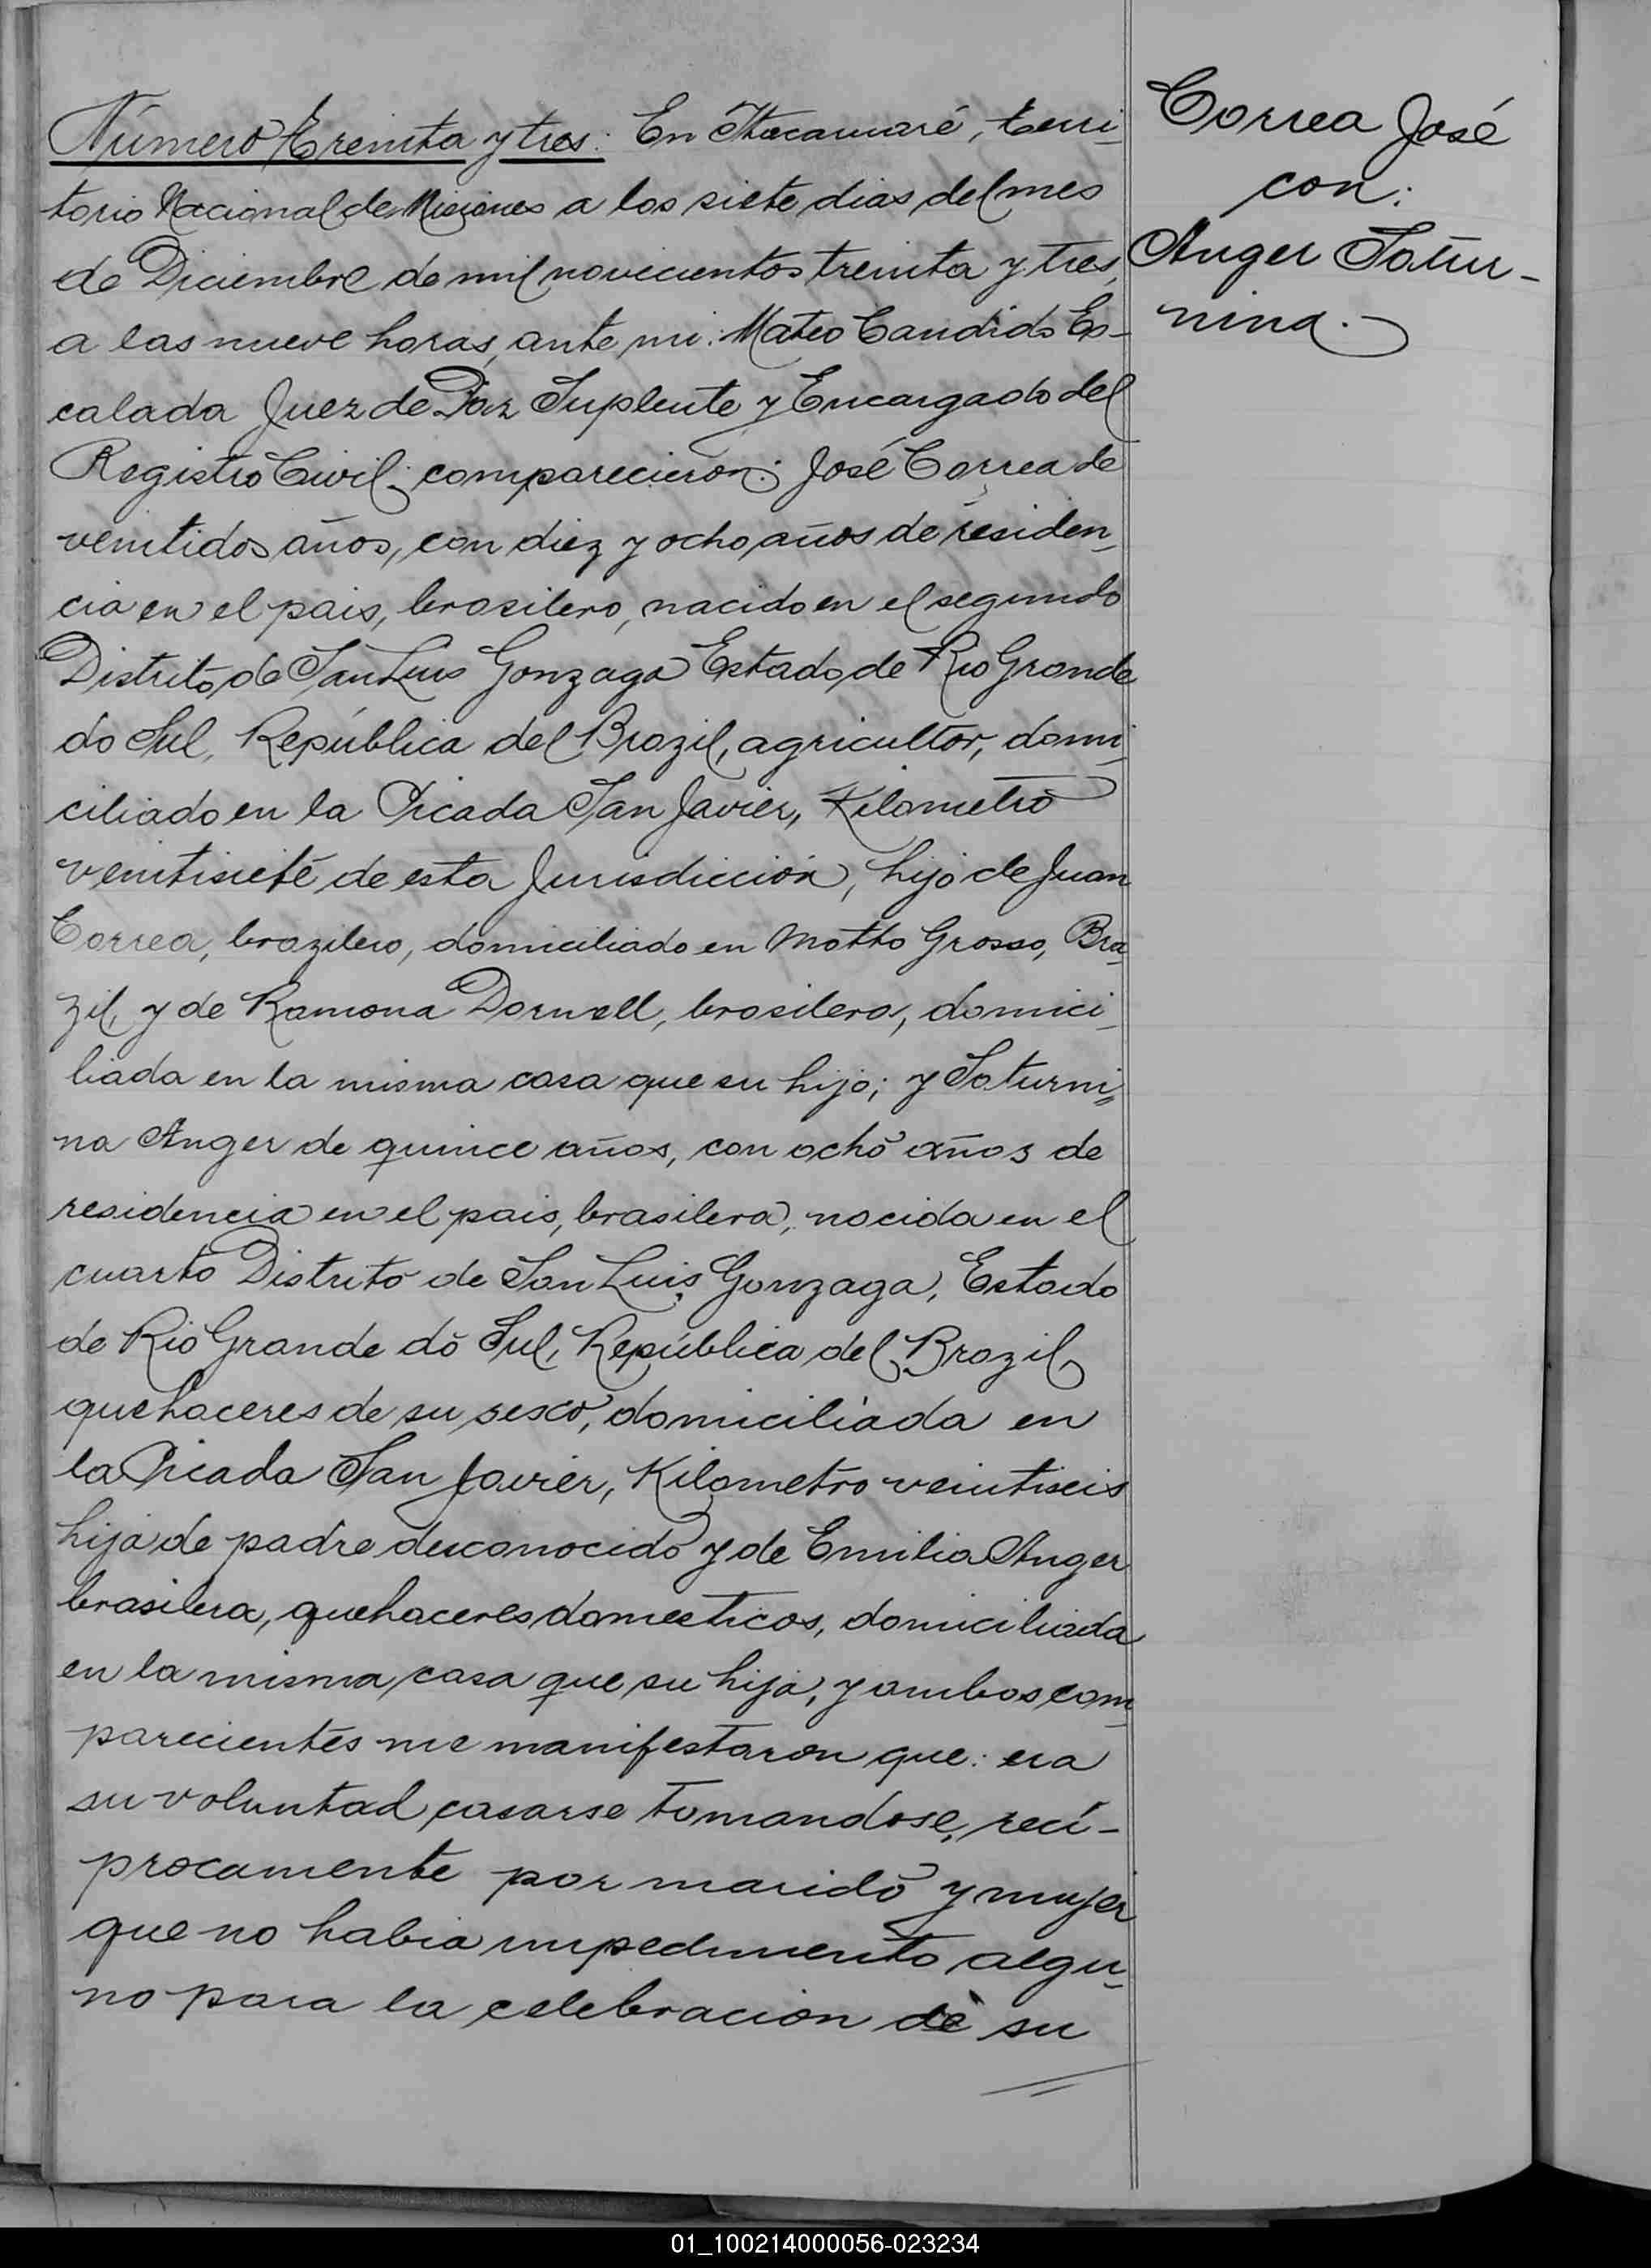 Número Treinta y tres: En Itacaruaré, terri-
torio Nacional de Misiones a los siete dias del mes
de Diciembre de mil novecientos treinta y tres,
a las nueve horas, ante mi: Mateo Candido Es-
calada Juez de Paz Suplente y Encargado del
Registro Civil; comparecieron: José Correa de
veintidos años, con diez y ocho años de residen-
cia en el pais, brasilero, nacido en el segundo
Distrito de San Luis Gonzaga Estado de Rio Grande
do Sul, República del Brazil, agricultor, domi-
ciliado en la Picada San Javier, Kilometro
veintisiete de esta Jurisdicción, hijo de Juan
Correa, brazilero, domiciliado en Motto Grosso, Bra-
zil, y de Ramona Dornell, brasilera, domici-
liada en la misma casa que su hijo; y Saturni-
na Anger de quince años, con ocho años de
residencia en el pais, brasilera, nacida en el
cuarto Distrito de San Luis Gonzaga, Estado
de Rio Grande do Sul, República del Brazil,
quehaceres de su sexo, domiciliada en
la Picada San Javier, Kilometro veintiseis
hija de padre desconocido y de Emilia Anger
brasilera, quehaceres domesticos, domiciliada
en la misma casa que su hija, y ambos com-
parecientes me manifestaron que: era
su voluntad casarse tomandose, reci-
procamente por marido y mujer
que no habia impedimento algu-
no para la celebracion de su
Correa José
con:
Anger Satur-
nina.
01_100214000056-023234